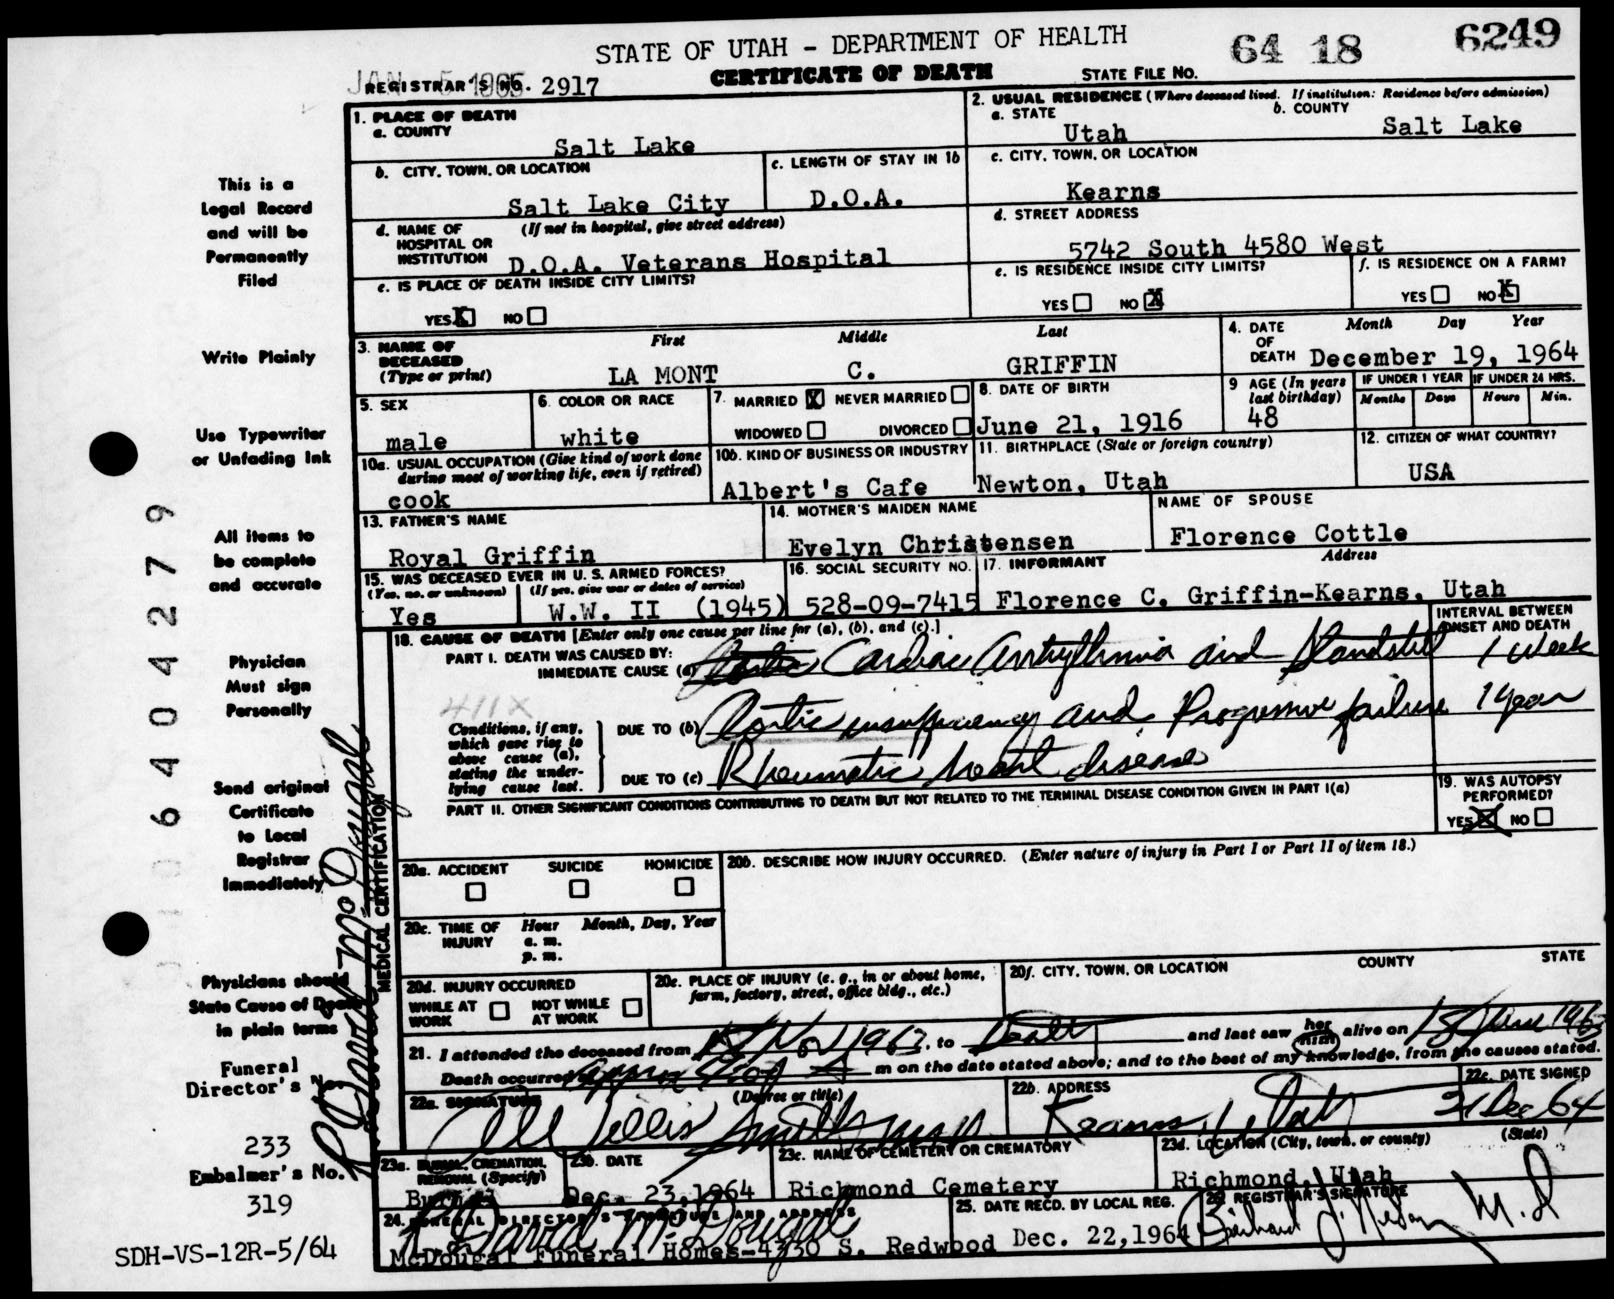 STATE OF UTAH - DEPARTMENT OF HEALTH
64 18 6249
CERTIFICATE OF DEATH
STATE FILE NO.
JAN 5 1965
REGISTRAR'S NO. 2917
1. PLACE OF DEATH
a. COUNTY
Salt Lake
2. USUAL RESIDENCE (Where deceased lived. If institution: Residence before admission)
a. STATE
Utah
b. COUNTY
Salt Lake
b. CITY, TOWN, OR LOCATION
Salt Lake City
c. LENGTH OF STAY IN 1b
D.O.A.
c. CITY, TOWN, OR LOCATION
Kearns
d. NAME OF HOSPITAL OR INSTITUTION
(If not in hospital, give street address)
D.O.A. Veterans Hospital
d. STREET ADDRESS
5742 South 4580 West
e. IS PLACE OF DEATH INSIDE CITY LIMITS?
YES X NO
e. IS RESIDENCE INSIDE CITY LIMITS?
YES NO X
f. IS RESIDENCE ON A FARM?
YES NO X
3. NAME OF DECEASED
(Type or print)
First Middle Last
LA MONT C. GRIFFIN
4. DATE OF DEATH
Month Day Year
December 19, 1964
5. SEX
male
6. COLOR OR RACE
white
7. MARRIED X NEVER MARRIED
WIDOWED DIVORCED
8. DATE OF BIRTH
June 21, 1916
9 AGE (In years last birthday)
48
IF UNDER 1 YEAR
Months Days
IF UNDER 24 HRS.
Hours Min.
10a. USUAL OCCUPATION (Give kind of work done during most of working life, even if retired)
cook
10b. KIND OF BUSINESS OR INDUSTRY
Albert's Cafe
11. BIRTHPLACE (State or foreign country)
Newton, Utah
12. CITIZEN OF WHAT COUNTRY?
USA
13. FATHER'S NAME
Royal Griffin
14. MOTHER'S MAIDEN NAME
Evelyn Christensen
NAME OF SPOUSE
Florence Cottle
15. WAS DECEASED EVER IN U. S. ARMED FORCES?
(Yes, no, or unknown) (If yes, give war or dates of service)
Yes W.W. II (1945)
16. SOCIAL SECURITY NO.
528-09-7415
17. INFORMANT
Address
Florence C. Griffin-Kearns, Utah
18. CAUSE OF DEATH [Enter only one cause per line for (a), (b), and (c).]
INTERVAL BETWEEN ONSET AND DEATH
PART I. DEATH WAS CAUSED BY:
IMMEDIATE CAUSE (a) Cardiac Arrhythmia and Standstill 1 week
411X
Conditions, if any, which gave rise to above cause (a), stating the underlying cause last.
DUE TO (b) Aortic insufficiency and Progressive failure 1 year
DUE TO (c) Rheumatic heart disease
PART II. OTHER SIGNIFICANT CONDITIONS CONTRIBUTING TO DEATH BUT NOT RELATED TO THE TERMINAL DISEASE CONDITION GIVEN IN PART I(a)
19. WAS AUTOPSY PERFORMED?
YES X NO
20a. ACCIDENT SUICIDE HOMICIDE
20b. DESCRIBE HOW INJURY OCCURRED. (Enter nature of injury in Part I or Part II of item 18.)
20c. TIME OF INJURY
Hour Month, Day, Year
a. m.
p. m.
20d. INJURY OCCURRED
WHILE AT WORK NOT WHILE AT WORK
20e. PLACE OF INJURY (e. g., in or about home, farm, factory, street, office bldg., etc.)
20f. CITY, TOWN, OR LOCATION COUNTY STATE
21. I attended the deceased from Nov 1963, to Death and last saw her him alive on 18 June 1963
Death occurred approx m on the date stated above; and to the best of my knowledge, from the causes stated.
22a. SIGNATURE (Degree or title)
22b. ADDRESS
Kearns, Utah
22c. DATE SIGNED
31 Dec 64
23a. BURIAL, CREMATION, REMOVAL (Specify)
Burial
23b. DATE
Dec. 23, 1964
23c. NAME OF CEMETERY OR CREMATORY
Richmond Cemetery
23d. LOCATION (City, town, or county) (State)
Richmond, Utah
24. FUNERAL DIRECTOR'S SIGNATURE AND ADDRESS
R David McDougal
McDougal Funeral Homes-4330 S. Redwood
25. DATE RECD. BY LOCAL REG.
Dec. 22,1964
26 REGISTRAR'S SIGNATURE
M.D
This is a
Legal Record
and will be
Permanently
Filed
Write Plainly
Use Typewriter
or Unfading Ink
All items to
be complete
and accurate
Physician
Must sign
Personally
Send original
Certificate
to Local
Registrar
Immediately
Physicians should
State Cause of Death
in plain terms
Funeral
Director's No.
233
Embalmer's No.
319
SDH-VS-12R-5/64
MEDICAL CERTIFICATION
R David McDougal
06404279